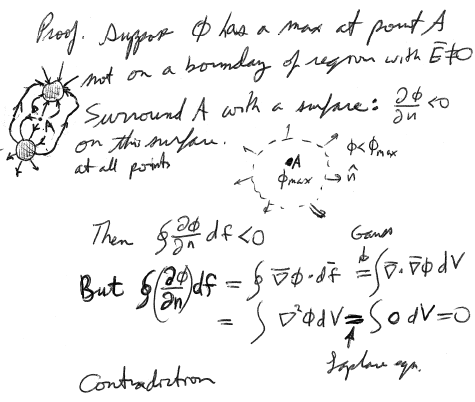 Proof. Suppose Φ has a max at point A
not on a boundary of region with E̅≠0
Surround A with a surface: ∂Φ/∂n <0
on this surface.
at all points
Φ<Φmax
•A
Φmax
n̂
Then ∮ ∂Φ/∂n df <0
Gauss
But ∮(∂Φ/∂n)df = ∮ ∇̅Φ·df̅ = ∫∇̅·∇̅Φ dV
= ∫ ∇²Φ dV = ∫ 0 dV = 0
Laplace eqn.
Contradiction